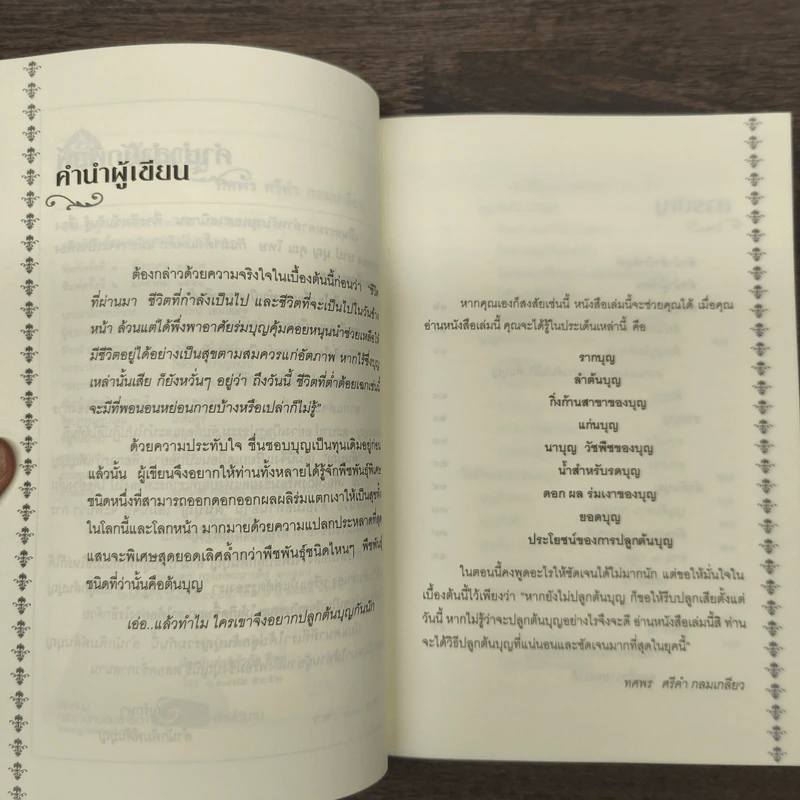 คำนำผู้เขียน
ต้องกล่าวด้วยความจริงใจในเบื้องต้นนี้ก่อนว่า "ชีวิต
ที่ผ่านมา ชีวิตที่กำลังเป็นไป และชีวิตที่จะเป็นไปในวันข้าง
หน้า ล้วนแต่ได้พึ่งพาอาศัยร่มบุญคุ้มคอยหนุนนำช่วยเหลือให้
มีชีวิตอยู่ได้อย่างเป็นสุขตามสมควรแก่อัตภาพ หากไร้ซึ่งบุญ
เหล่านั้นเสีย ก็ยังหวั่นๆ อยู่ว่า ถึงวันนี้ ชีวิตที่ต่ำต้อยเฉกเช่นนี้
จะมีที่พอนอนหย่อนกายบ้างหรือเปล่าก็ไม่รู้"
ด้วยความประทับใจ ชื่นชอบบุญเป็นทุนเดิมอยู่ก่อน
แล้วนั้น ผู้เขียนจึงอยากให้ท่านทั้งหลายได้รู้จักพืชพันธุ์พิเศษ
ชนิดหนึ่งที่สามารถออกดอกออกผลผลิร่มแตกเงาให้เป็นสุขทั้ง
ในโลกนี้และโลกหน้า มากมายด้วยความแปลกประหลาดที่สุด
แสนจะพิเศษสุดยอดเลิศล้ำกว่าพืชพันธุ์ชนิดไหนๆ พืชพันธุ์
ชนิดที่ว่านั้นคือต้นบุญ
เอ่อ..แล้วทำไม ใครเขาจึงอยากปลูกต้นบุญกันนัก
หากคุณเองก็สงสัยเช่นนี้ หนังสือเล่มนี้จะช่วยคุณได้ เมื่อคุณ
อ่านหนังสือเล่มนี้ คุณจะได้รู้ในประเด็นเหล่านี้ คือ
รากบุญ
ลำต้นบุญ
กิ่งก้านสาขาของบุญ
แก่นบุญ
นาบุญ วัชพืชของบุญ
น้ำสำหรับรดบุญ
ดอก ผล ร่มเงาของบุญ
ยอดบุญ
ประโยชน์ของการปลูกต้นบุญ
ในตอนนี้คงพูดอะไรให้ชัดเจนได้ไม่มากนัก แต่ขอให้มั่นใจใน
เบื้องต้นนี้ไว้เพียงว่า "หากยังไม่ปลูกต้นบุญ ก็ขอให้รีบปลูกเสียตั้งแต่
วันนี้ หากไม่รู้ว่าจะปลูกต้นบุญอย่างไรจึงจะดี อ่านหนังสือเล่มนี้สิ ท่าน
จะได้วิธีปลูกต้นบุญที่แน่นอนและชัดเจนมากที่สุดในยุคนี้"
ทศพร ศรีคำ กลมเกลียว